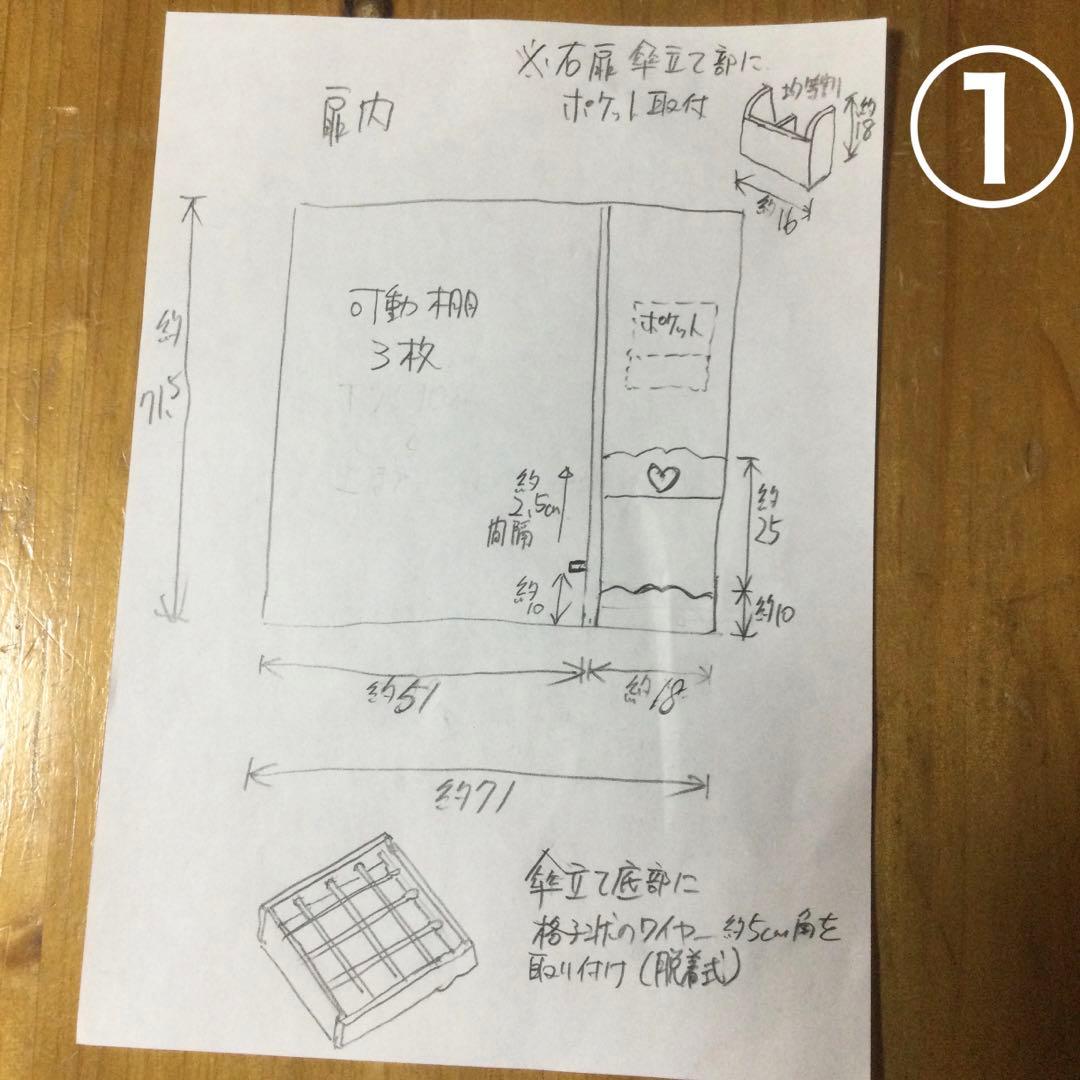 ①
※右扉 傘立て部に
ポケット取付
扉内
均等割
約18
約16
約71.5
可動棚
3枚
ポケット
約2.5cm
間隔
約10
約25
約10
約51
約18
約71
傘立て底部に
格子状のワイヤー約5cm角を
取り付け(脱着式)